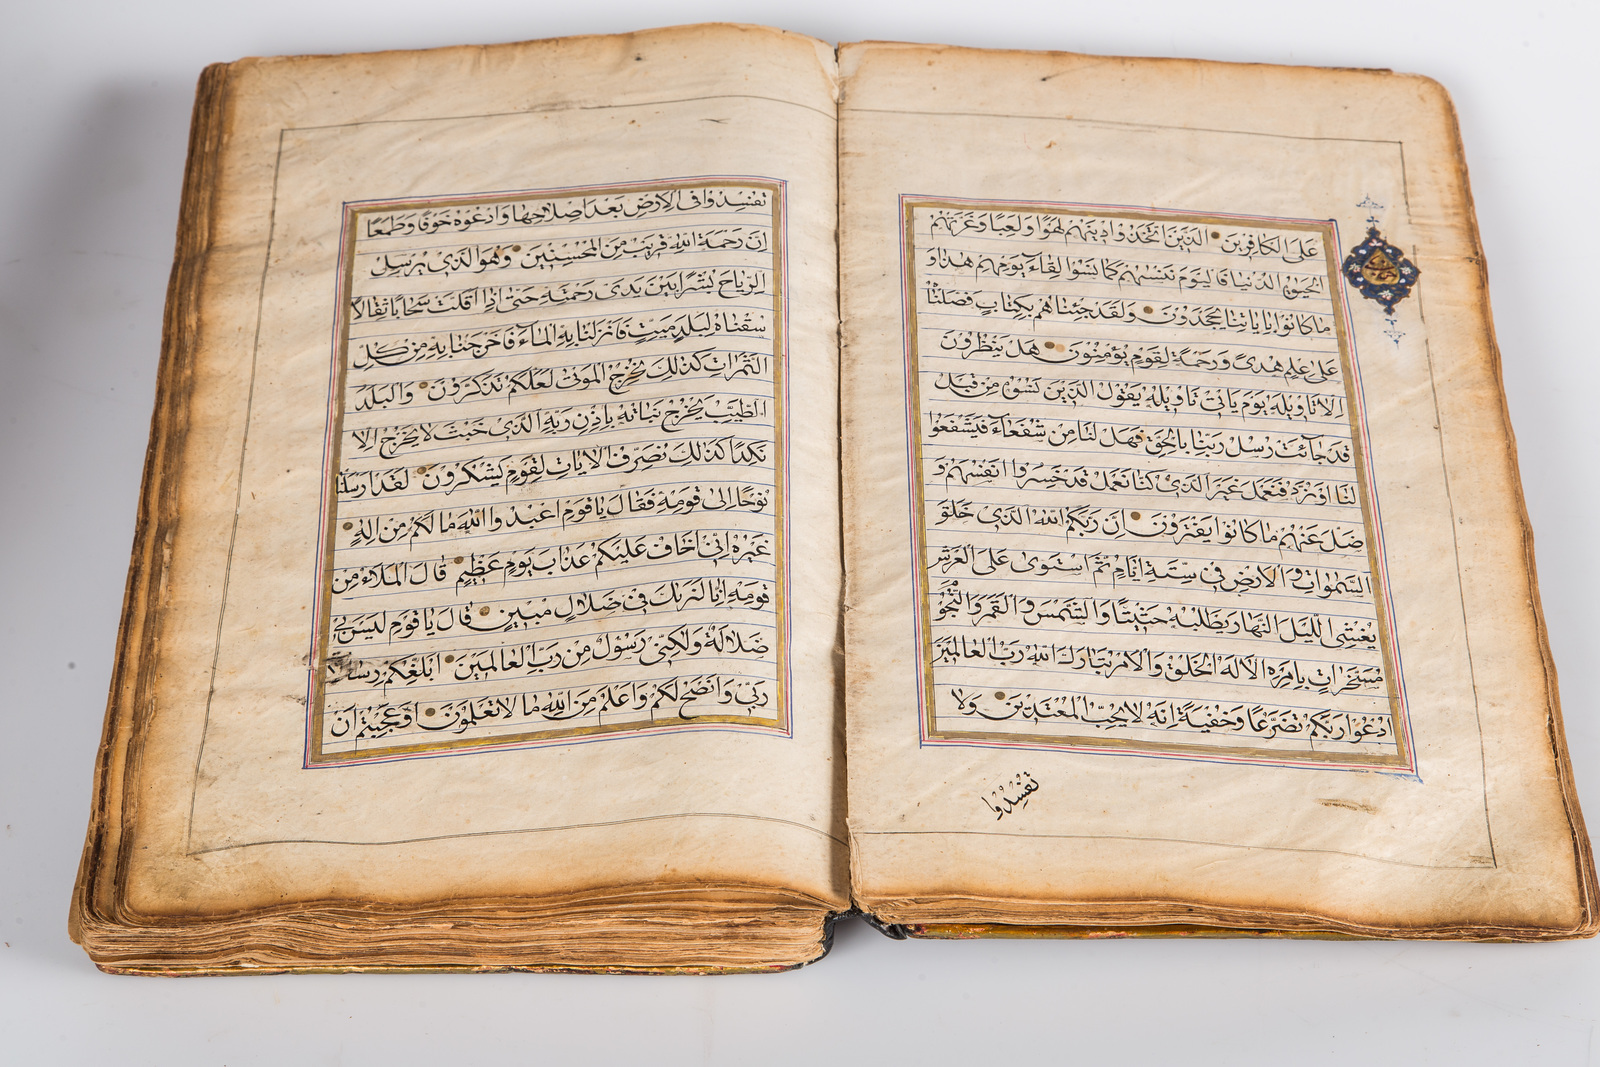 عَلَى الكَافِرِينَ الَّذِينَ اتَّخَذُوا دِينَهُمْ لَهْوًا وَلَعِبًا وَغَرَّتْهُمُ
الحَيٰوةُ الدُّنْيَا فَاليَوْمَ نَنْسٰهُمْ كَمَا نَسُوا لِقَاءَ يَوْمِهِمْ هٰذَا وَ
مَا كَانُوا بِاٰيَاتِنَا يَجْحَدُونَ وَلَقَدْ جِئْنَاهُمْ بِكِتَابٍ فَصَّلْنَاهُ
عَلَى عِلْمٍ هُدًى وَرَحْمَةً لِقَوْمٍ يُؤْمِنُونَ هَلْ يَنْظُرُونَ
اِلَّا تَاْوِيلَهُ يَوْمَ يَاْتِي تَاْوِيلُهُ يَقُولُ الَّذِينَ نَسُوهُ مِنْ قَبْلُ
قَدْ جَائَتْ رُسُلُ رَبِّنَا بِالحَقِّ فَهَلْ لَنَا مِنْ شُفَعَاءَ فَيَشْفَعُوا
لَنَا اَوْ نُرَدُّ فَنَعْمَلَ غَيْرَ الَّذِي كُنَّا نَعْمَلُ قَدْ خَسِرُوا اَنْفُسَهُمْ وَ
ضَلَّ عَنْهُمْ مَا كَانُوا يَفْتَرُونَ اِنَّ رَبَّكُمُ اللهُ الَّذِي خَلَقَ
السَّمٰوَاتِ وَالاَرْضَ فِي سِتَّةِ اَيَّامٍ ثُمَّ اسْتَوَى عَلَى العَرْشِ
يُغْشِي اللَّيْلَ النَّهَارَ يَطْلُبُهُ حَثِيثًا وَالشَّمْسَ وَالقَمَرَ وَالنُّجُومَ
مُسَخَّرَاتٍ بِاَمْرِهِ اَلَا لَهُ الخَلْقُ وَالاَمْرُ تَبَارَكَ اللهُ رَبُّ العَالَمِينَ
اُدْعُوا رَبَّكُمْ تَضَرُّعًا وَخُفْيَةً اِنَّهُ لَا يُحِبُّ المُعْتَدِينَ وَلَا
تُفْسِدُوا
تُفْسِدُوا فِي الاَرْضِ بَعْدَ اِصْلَاحِهَا وَادْعُوهُ خَوْفًا وَطَمَعًا
اِنَّ رَحْمَةَ اللهِ قَرِيبٌ مِنَ المُحْسِنِينَ وَهُوَ الَّذِي يُرْسِلُ
الرِّيَاحَ بُشْرًا بَيْنَ يَدَيْ رَحْمَتِهِ حَتَّى اِذَا اَقَلَّتْ سَحَابًا ثِقَالًا
سُقْنَاهُ لِبَلَدٍ مَيِّتٍ فَاَنْزَلْنَا بِهِ المَاءَ فَاَخْرَجْنَا بِهِ مِنْ كُلِّ
الثَّمَرَاتِ كَذٰلِكَ نُخْرِجُ المَوْتَى لَعَلَّكُمْ تَذَكَّرُونَ وَالبَلَدُ
الطَّيِّبُ يَخْرُجُ نَبَاتُهُ بِاِذْنِ رَبِّهِ وَالَّذِي خَبُثَ لَا يَخْرُجُ اِلَّا
نَكِدًا كَذٰلِكَ نُصَرِّفُ الاٰيَاتِ لِقَوْمٍ يَشْكُرُونَ لَقَدْ اَرْسَلْنَا
نُوحًا اِلَى قَوْمِهِ فَقَالَ يَا قَوْمِ اعْبُدُوا اللهَ مَا لَكُمْ مِنْ اِلٰهٍ
غَيْرُهُ اِنِّي اَخَافُ عَلَيْكُمْ عَذَابَ يَوْمٍ عَظِيمٍ قَالَ المَلَاءُ مِنْ
قَوْمِهِ اِنَّا لَنَرٰيكَ فِي ضَلَالٍ مُبِينٍ قَالَ يَا قَوْمِ لَيْسَ بِي
ضَلَالَةٌ وَلٰكِنِّي رَسُولٌ مِنْ رَبِّ العَالَمِينَ اُبَلِّغُكُمْ رِسَالَاتِ
رَبِّي وَاَنْصَحُ لَكُمْ وَاَعْلَمُ مِنَ اللهِ مَا لَا تَعْلَمُونَ اَوَعَجِبْتُمْ اَنْ